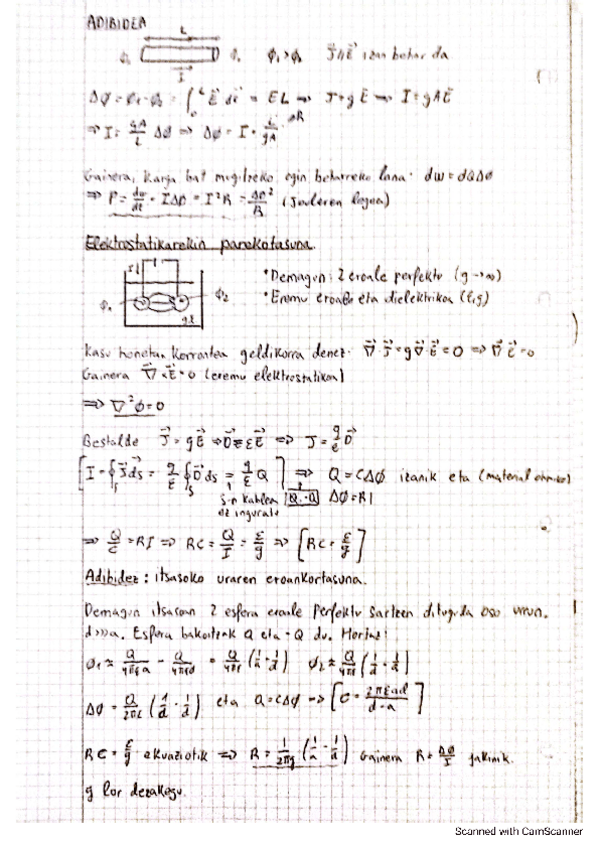 ADIBIDEA
L
Φ₁ Φ₂ Φ₁>Φ₂ J⃗∥E⃗ izan behar da
J⃗
ΔΦ = Φ₁-Φ₂ = ∫₀ᴸ E⃗ dl⃗ = EL → J=gE → I=gAE
⇒ I = gA/L ΔΦ ⇒ ΔΦ = I · L/gA R
Gainera, karga bat mugitzeko egin beharreko lana: dw = dQΔΦ
⇒ P = dw/dt = IΔΦ = I²R = ΔΦ²/R (Jouleren legea)
Elektrostatikarekin parekotasuna.
• Demagun: 2 eroale perfektu (g→∞)
Φ₁ Φ₂ • Eremu eroale eta dielektrikoa (ε,g)
g,ε
Kasu honetan korrontea geldikorra denez: ∇⃗·J⃗ = g∇⃗·E⃗ = 0 ⇒ ∇⃗·E⃗ = 0
Gainera ∇⃗×E⃗ = 0 (eremu elektrostatikoa)
⇒ ∇²Φ = 0
Bestalde J⃗ = gE⃗ ⇒ D⃗ = εE⃗ ⇒ J⃗ = g/ε D⃗
[I = ∮ₛ J⃗ds⃗ = g/ε ∮ₛ D⃗ds = g/ε Q] ⇒ Q = CΔΦ izanik eta (material ohmikoa)
S-n kablea Q,-Q ΔΦ = RI
ez inguratu
⇒ Q/C = RI ⇒ RC = Q/I = ε/g ⇒ [RC = ε/g]
Adibidez: itsasoko uraren eroankortasuna.
Demagun itsasoan 2 esfera eroale perfektu sartzen ditugula oso urrun.
d>>>a. Esfera bakoitzak Q eta -Q du. Horiaz:
Φ₁ ≈ Q/4πεa - Q/4πεd = Q/4πε (1/a - 1/d) Φ₂ ≈ Q/4πε (1/d - 1/a)
ΔΦ = Q/2πε (1/a - 1/d) eta Q = CΔΦ → [C = 2πεad/d-a]
RC = ε/g ekuaziotik ⇒ R = 1/2πg (1/a - 1/d) Gainera R = ΔΦ/I jakinik.
g lor dezakegu.
Scanned with CamScanner